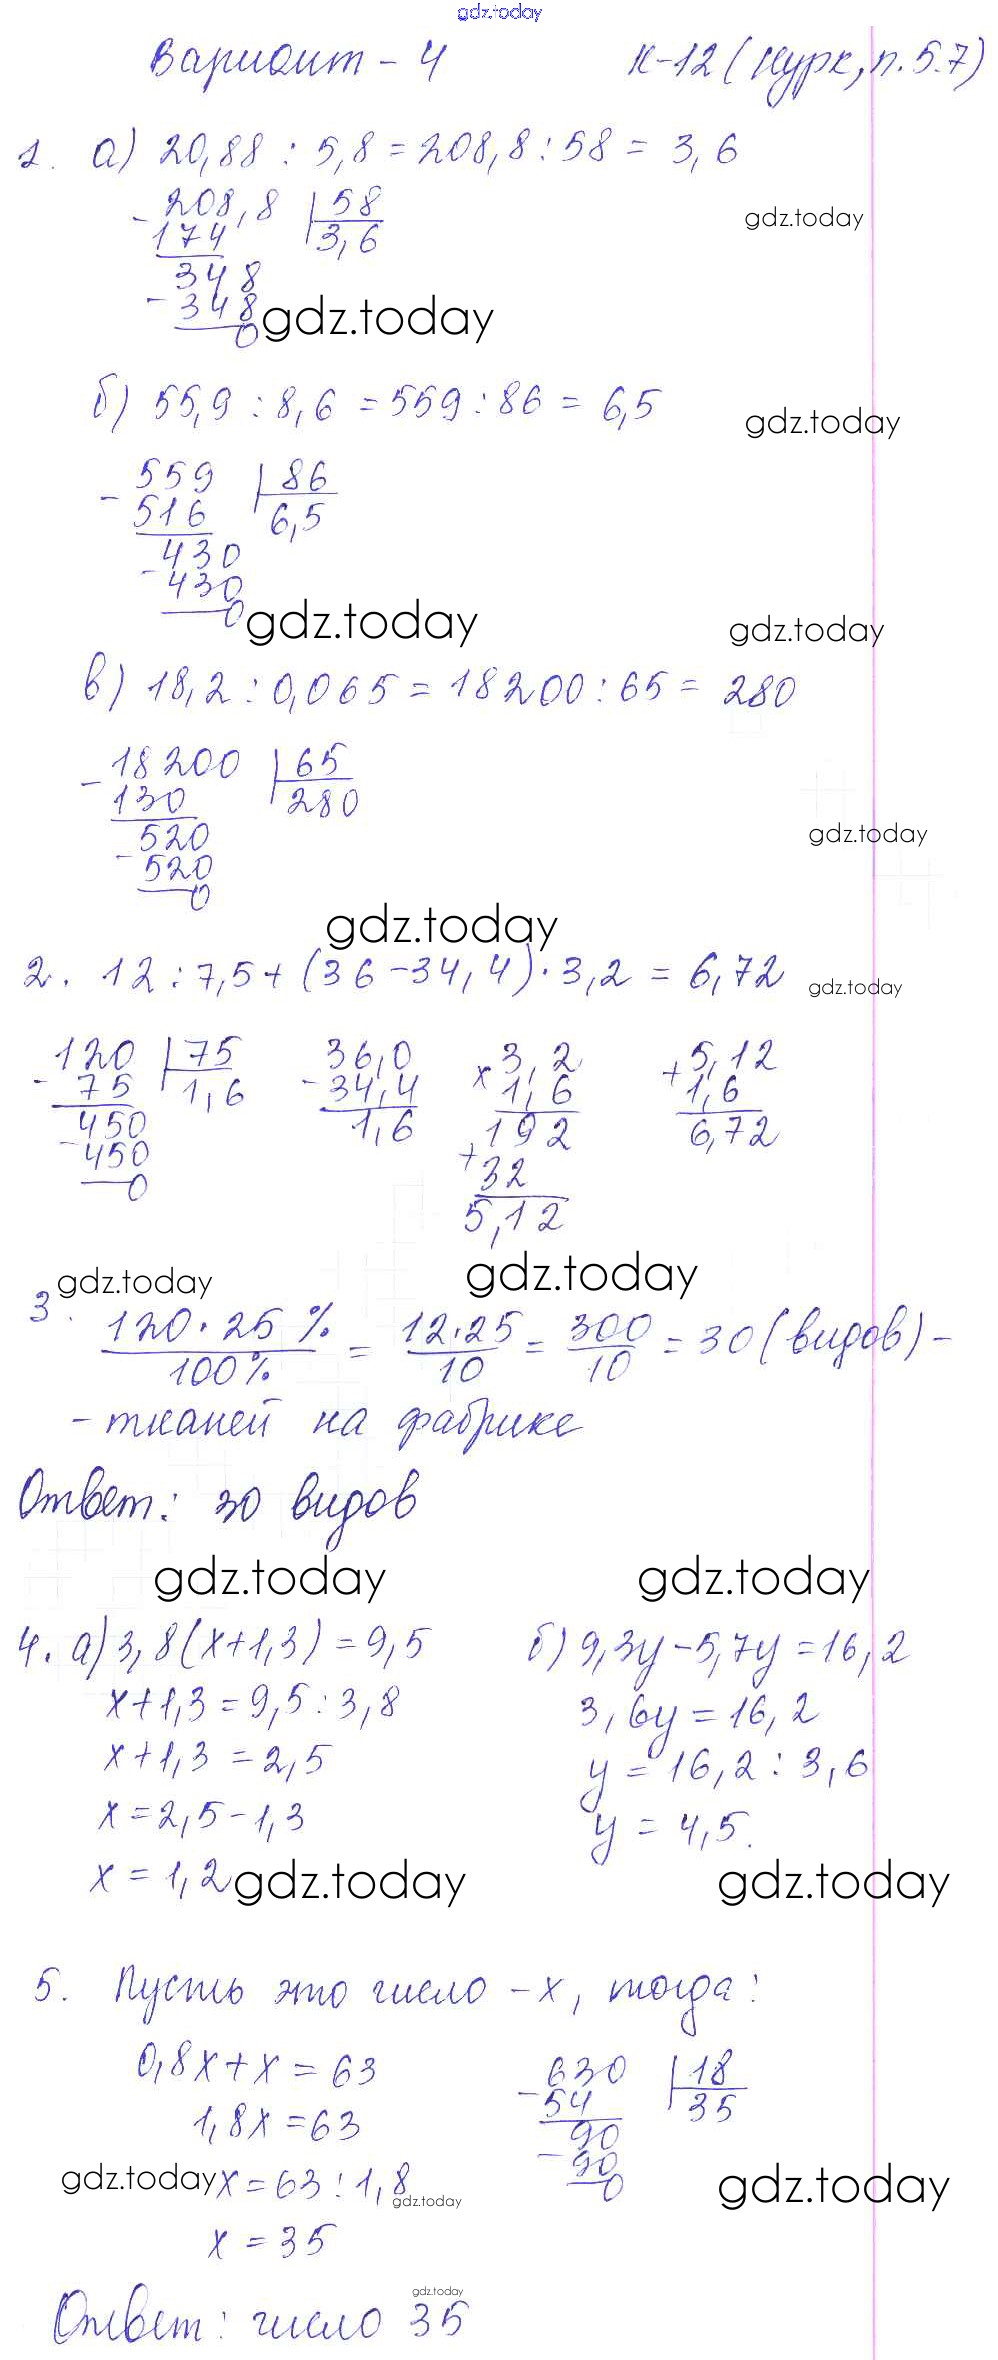 gdz.today
Вариант - 4 К-12 (Нурк, п. 5.7)
1. а) 20,88 : 5,8 = 208,8 : 58 = 3,6
- 208,8 | 58
174 3,6
gdz.today
348
- 348
0
gdz.today
б) 55,9 : 8,6 = 559 : 86 = 6,5
gdz.today
- 559 | 86
516 6,5
430
- 430
0
gdz.today
gdz.today
в) 18,2 : 0,065 = 18200 : 65 = 280
- 18200 | 65
130 280
520
- 520
0
gdz.today
gdz.today
2. 12 : 7,5 + (36 - 34,4) · 3,2 = 6,72
gdz.today
120 | 75 36,0 3,2 5,12
- 75 1,6 - 34,4 x 1,6 + 1,6
450 1,6 192 6,72
- 450 + 32
0 5,12
gdz.today
gdz.today
3. 120 · 25 % / 100% = 12 · 25 / 10 = 300 / 10 = 30 (видов) -
- тканей на фабрике
Ответ: 30 видов
gdz.today gdz.today
4. а) 3,8(х+1,3) = 9,5 б) 9,3у - 5,7у = 16,2
х+1,3 = 9,5 : 3,8 3,6у = 16,2
х+1,3 = 2,5 у = 16,2 : 3,6
х = 2,5 - 1,3 у = 4,5.
х = 1,2
gdz.today gdz.today
5. Пусть это число - х, тогда:
0,8х + х = 63 630 | 18
1,8х = 63 - 54 35
х = 63 : 1,8 90
х = 35 - 90
0
gdz.today gdz.today gdz.today
gdz.today
Ответ: число 35